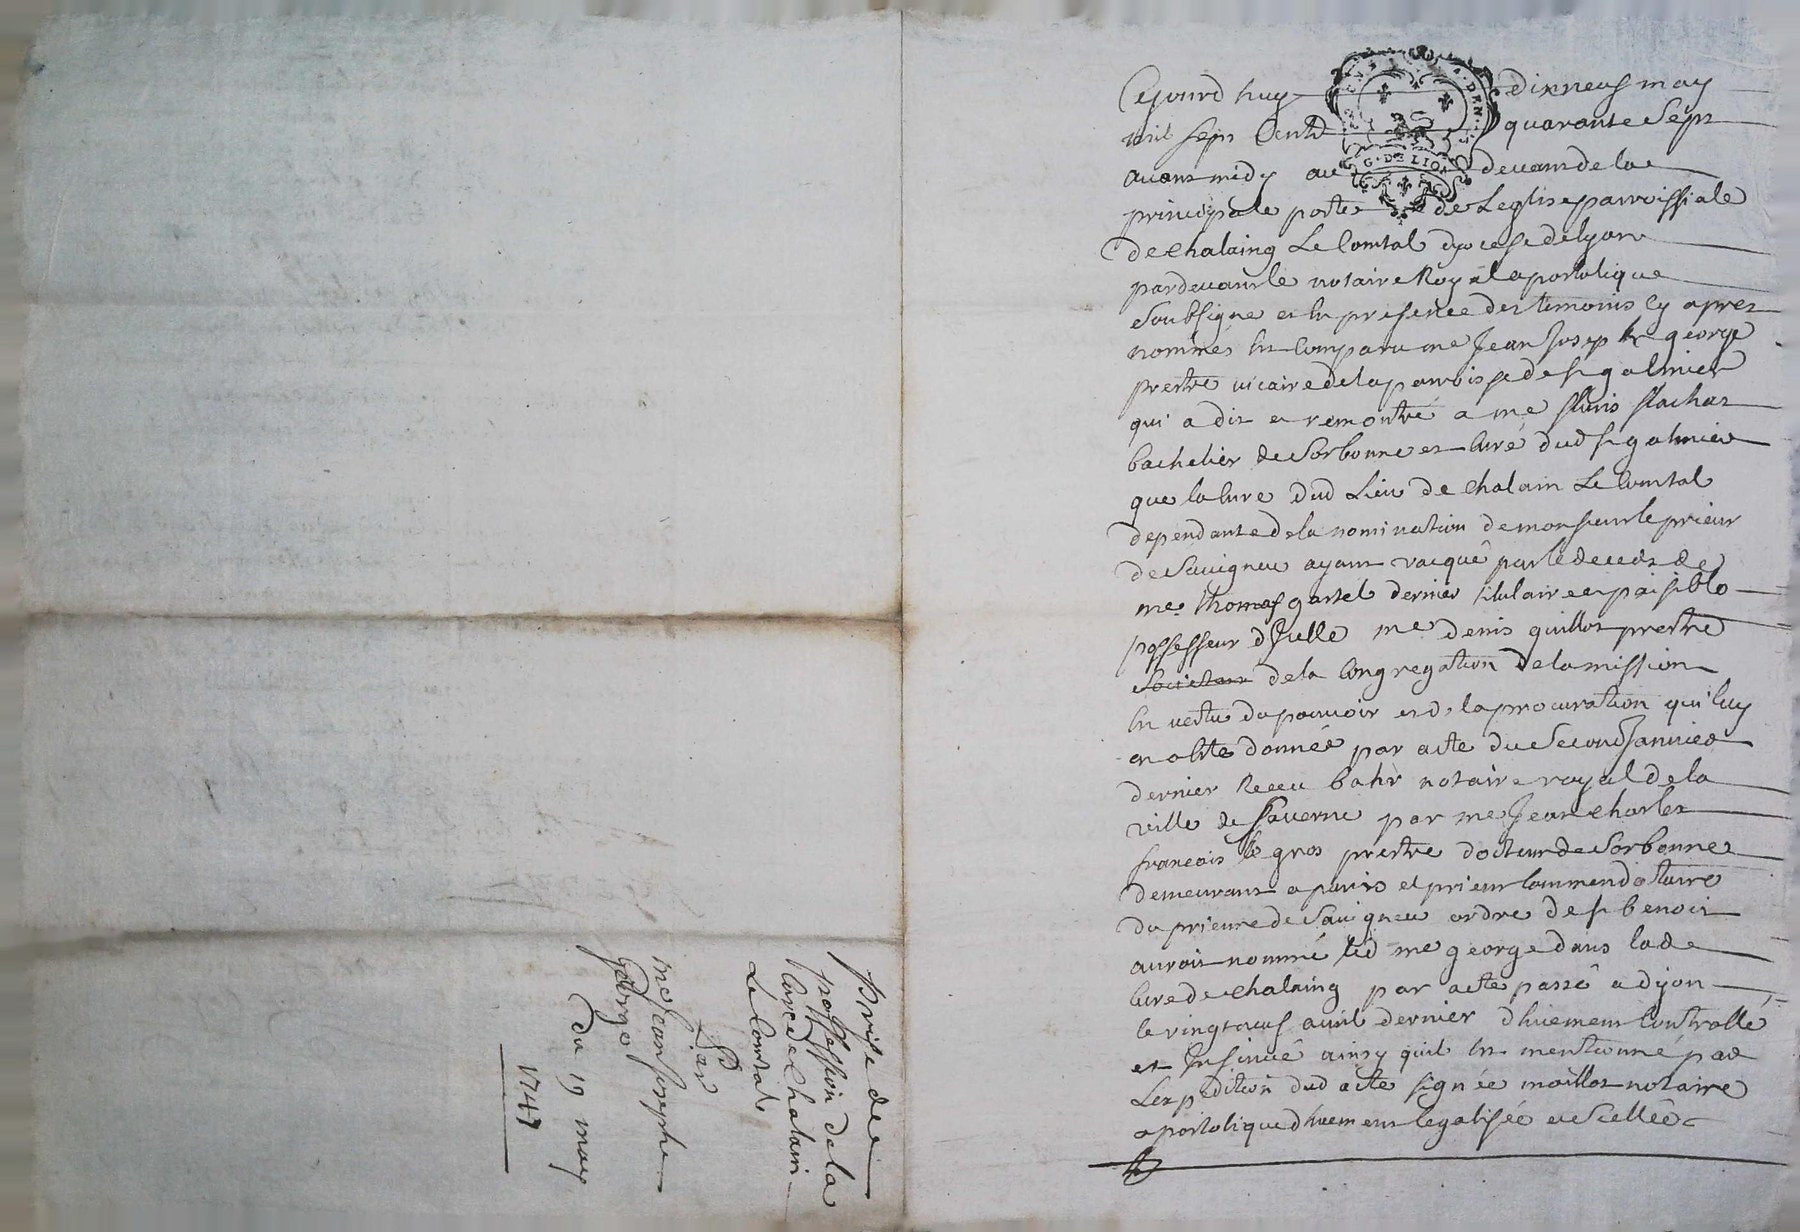 Cejourd huy dixneuf may
mil sept Cents quarante Sept
avant midy au devant de la
principale porte de Leglise parroissiale
de Chalaing Le Comtal dyocese de lyon
pardevant le notaire Royal apostolique
Soubsigne et En presence des temoins Cy apres
nommés Est Comparu me Jean Joseph george
prestre vicaire de la parroisse de st galmier
qui a dit et remontré a me flachat
bachelier de Sorbonne et Curé dud st galmier
que la Cure dud Lieu de Chalain Le Comtal
dependante de la nomination de monsieur le prieur
de Savigneu ayant vacqué par le deceds de
me thomas gastel dernier titulaire et paisible
possesseur d'Icelle me denis guillot prestre
de la Congregation de la mission
En vertu du pouvoir et de la procuration qui luy
en a Esté donnée par acte du Second Janvier
dernier Receu bahr notaire royal de la
ville de Saverne par me Jean Charles
francois le gros prestre docteur de Sorbonne
demeurant a paris et prieur Commendataire
du prieuré de Savigneu ordre de st benoit
auroit nommé led me george dans lade
Cure de Chalaing par acte passé a dijon
le vingt avril dernier dhuement Controllé
et Insinué ainsy quil Est mentionné par
Lexpedition dud acte signée maillot notaire
apostolique dhuement legalisée et Scellée
G·DE LIO
Prise de
possession de la
Cure de Chalain
Le Comtal
Par
me Jean Joseph
George
du 19 may
1747